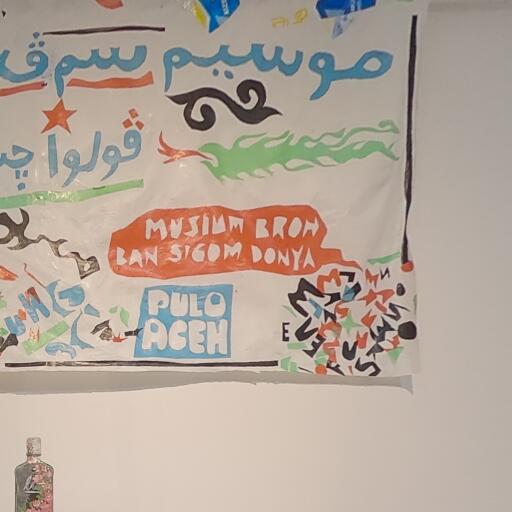 موسيم سمڤ
ڤولو اچ
MUSIUM BROH
BAN SIGOM DONYA
PULO
ACEH